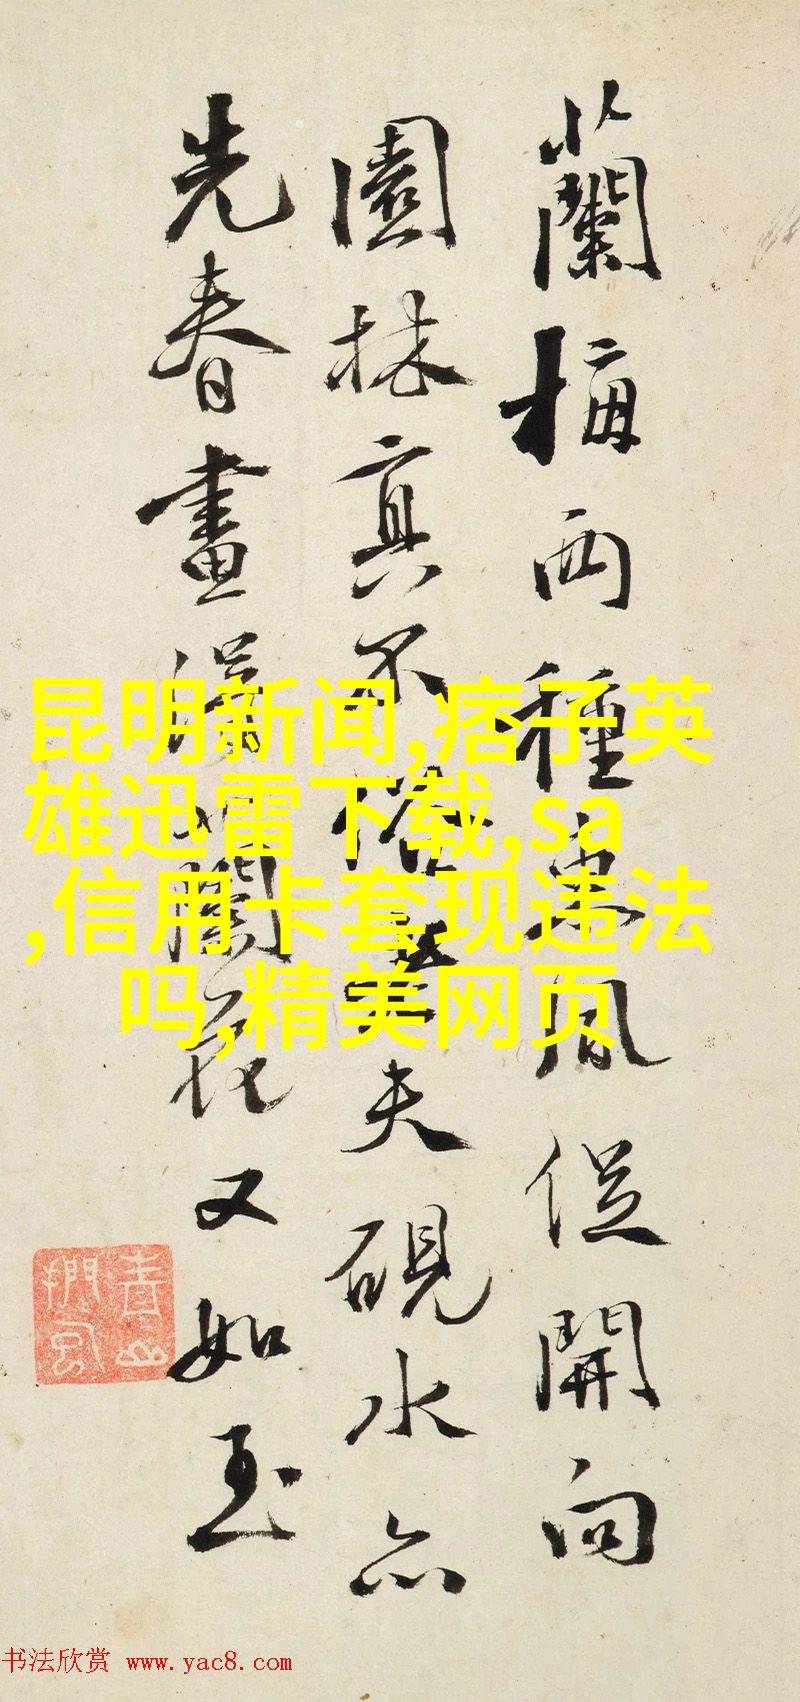 蘭梅两種蕙風從開向
園林真不俗 夫硯水亦
先春畫得蘭花又如玉
昆明新闻,痞子英
雄迅雷下载,sa
,信用卡套现违法
吗,精美网页
书法欣赏 www.yac8.com